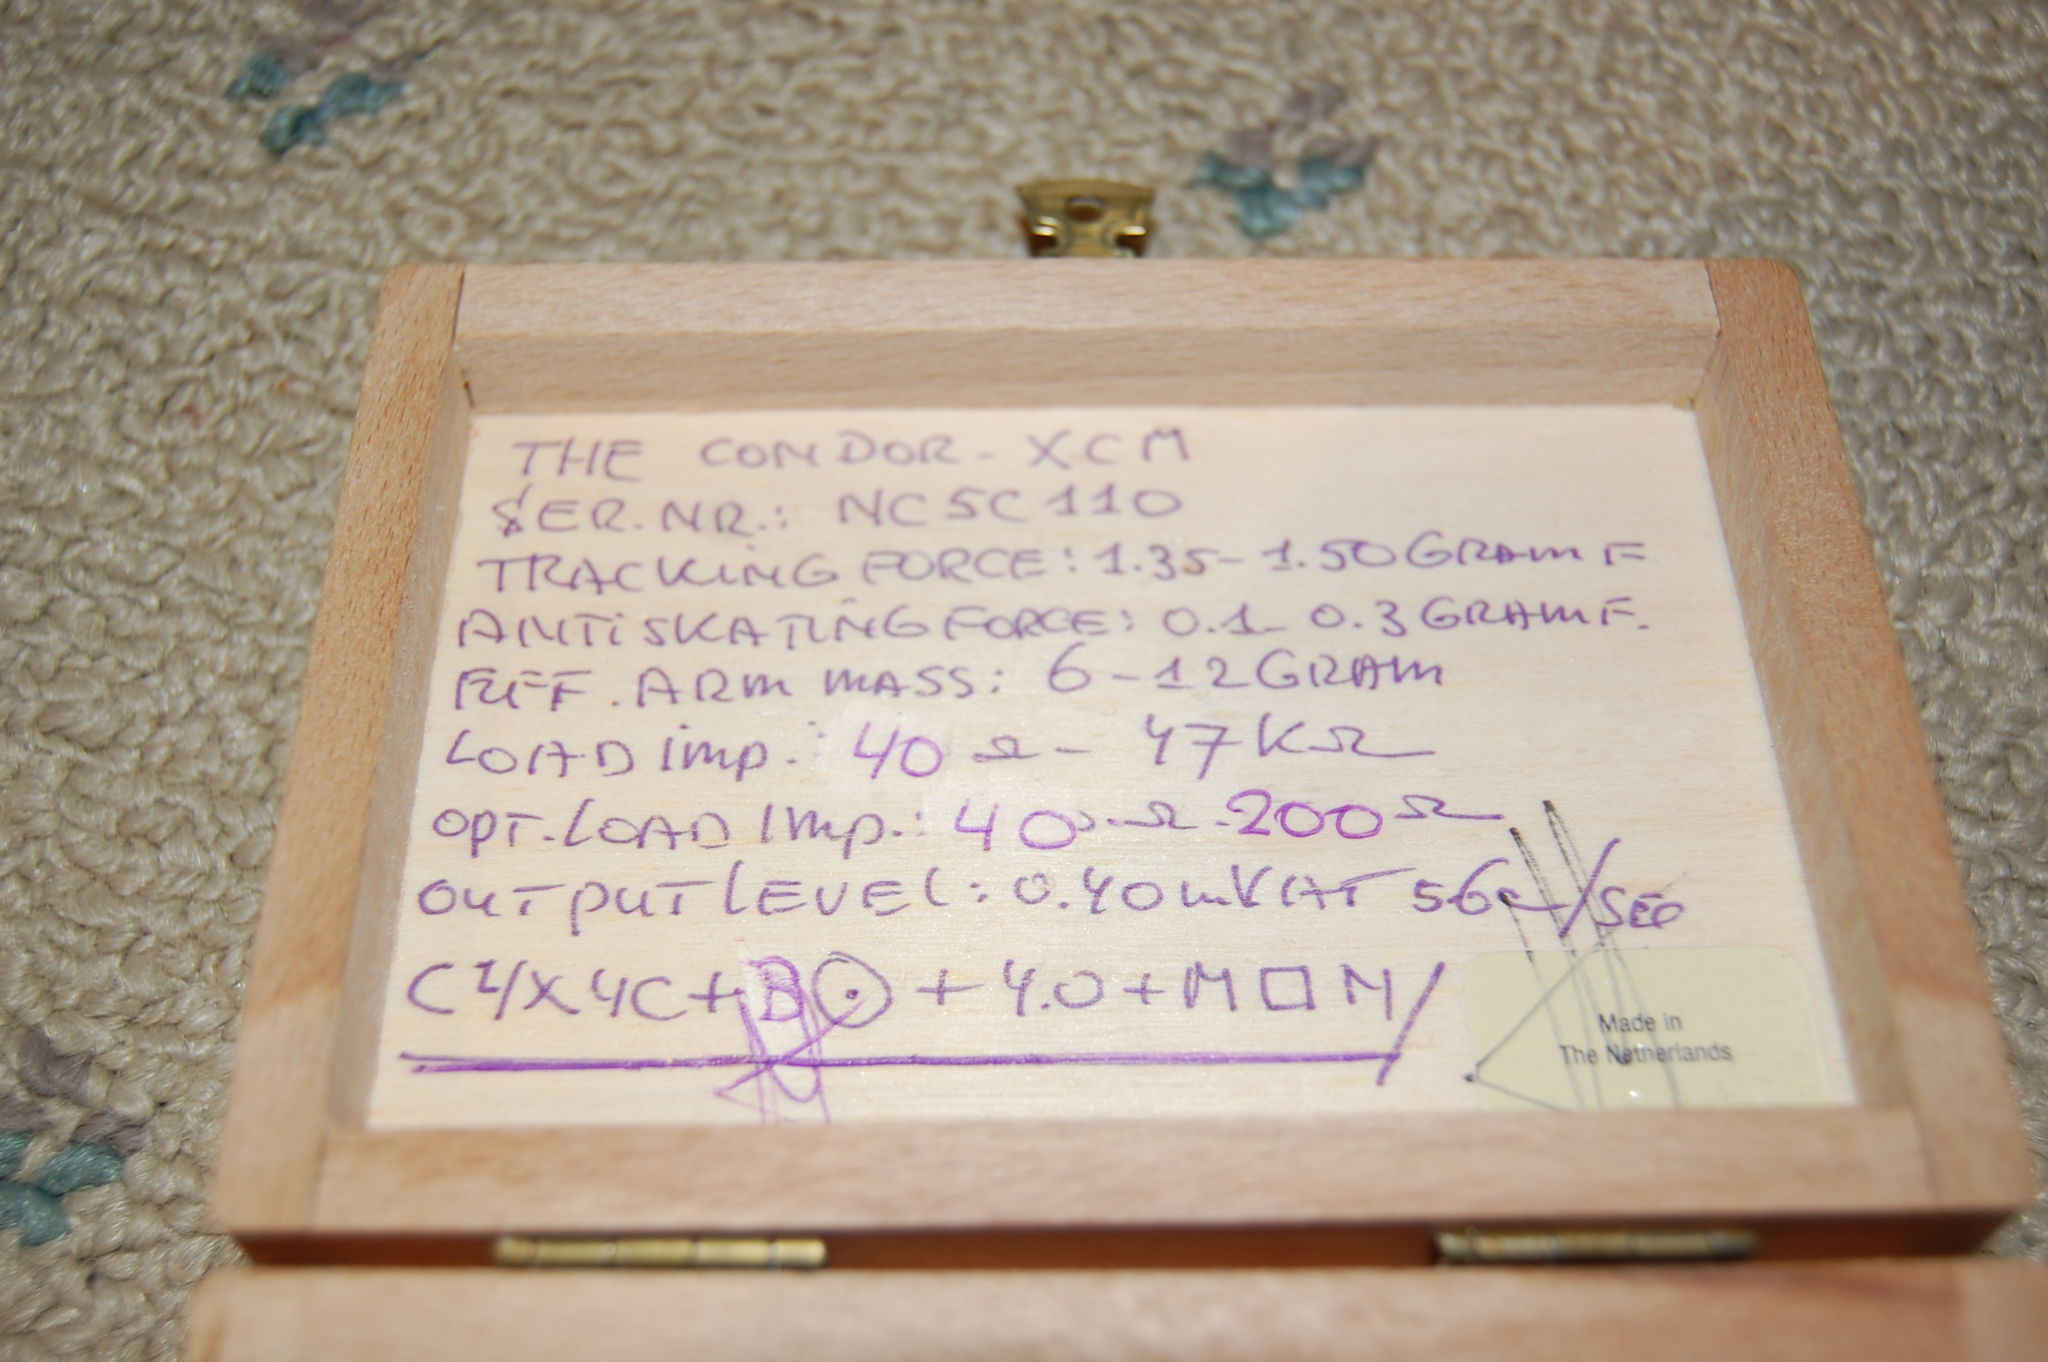 THE CONDOR - XCM
SER.NR.: NC5C110
TRACKING FORCE: 1.35 - 1.50 GRAM F
ANTiSKATING FORCE: 0.1 - 0.3 GRAM F.
EFF. ARM MASS: 6 - 12 GRAM
LOAD imp.: 40 Ω - 47 KΩ
OPT. LOAD Imp.: 40 Ω - 200 Ω
OUTPUT LEVEL: 0.40 mV AT 56 /SEC
+ 4.0 + M □ M/
Made in
The Netherlands